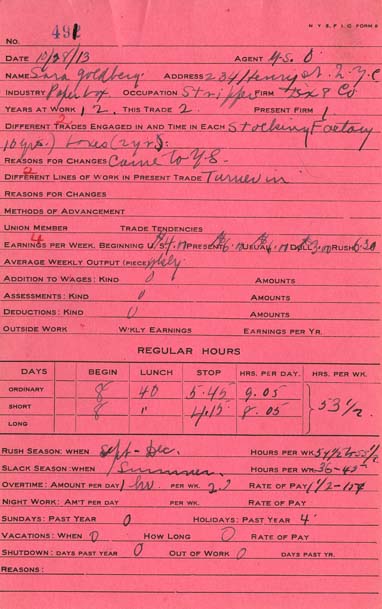 N Y S F I C FORM 8
No. 491
DATE 10/28/13 AGENT
NAME Sara Goldberg ADDRESS 234 Henry St. N.Y.C
INDUSTRY Paper box OCCUPATION Stripper FIRM
YEARS AT WORK 12. THIS TRADE 2. PRESENT FIRM 1
DIFFERENT TRADES ENGAGED IN AND TIME IN EACH 2 Stocking Factory
10 yrs.) boxes (2 yrs):
REASONS FOR CHANGES Came to U.S.
DIFFERENT LINES OF WORK IN PRESENT TRADE 2 Turner in
REASONS FOR CHANGES
METHODS OF ADVANCEMENT
UNION MEMBER TRADE TENDENCIES
EARNINGS PER WEEK. BEGINNING PRESENT USUAL DULL RUSH 6.50
AVERAGE WEEKLY OUTPUT (PIECE) wkly
ADDITION TO WAGES: KIND 0 AMOUNTS
ASSESSMENTS: KIND 0 AMOUNTS
DEDUCTIONS: KIND 0 AMOUNTS
OUTSIDE WORK W'KLY EARNINGS EARNINGS PER YR.
REGULAR HOURS
DAYS BEGIN LUNCH STOP HRS. PER DAY. HRS. PER WK.
ORDINARY 8 40 5.45 9.05
SHORT 8 " 4.45 8.05 53 1/2
LONG
RUSH SEASON: WHEN Sept - Dec. HOURS PER WK.
SLACK SEASON: WHEN Summer. HOURS PER WK. 36-45
OVERTIME: AMOUNT PER DAY 1 hr. PER WK. 2 ? RATE OF PAY
NIGHT WORK: AM'T PER DAY PER WK. RATE OF PAY
SUNDAYS: PAST YEAR 0 HOLIDAYS: PAST YEAR 4
VACATIONS: WHEN 0 HOW LONG 0 RATE OF PAY
SHUTDOWN: DAYS PAST YEAR 0 OUT OF WORK 0 DAYS PAST YR.
REASONS: